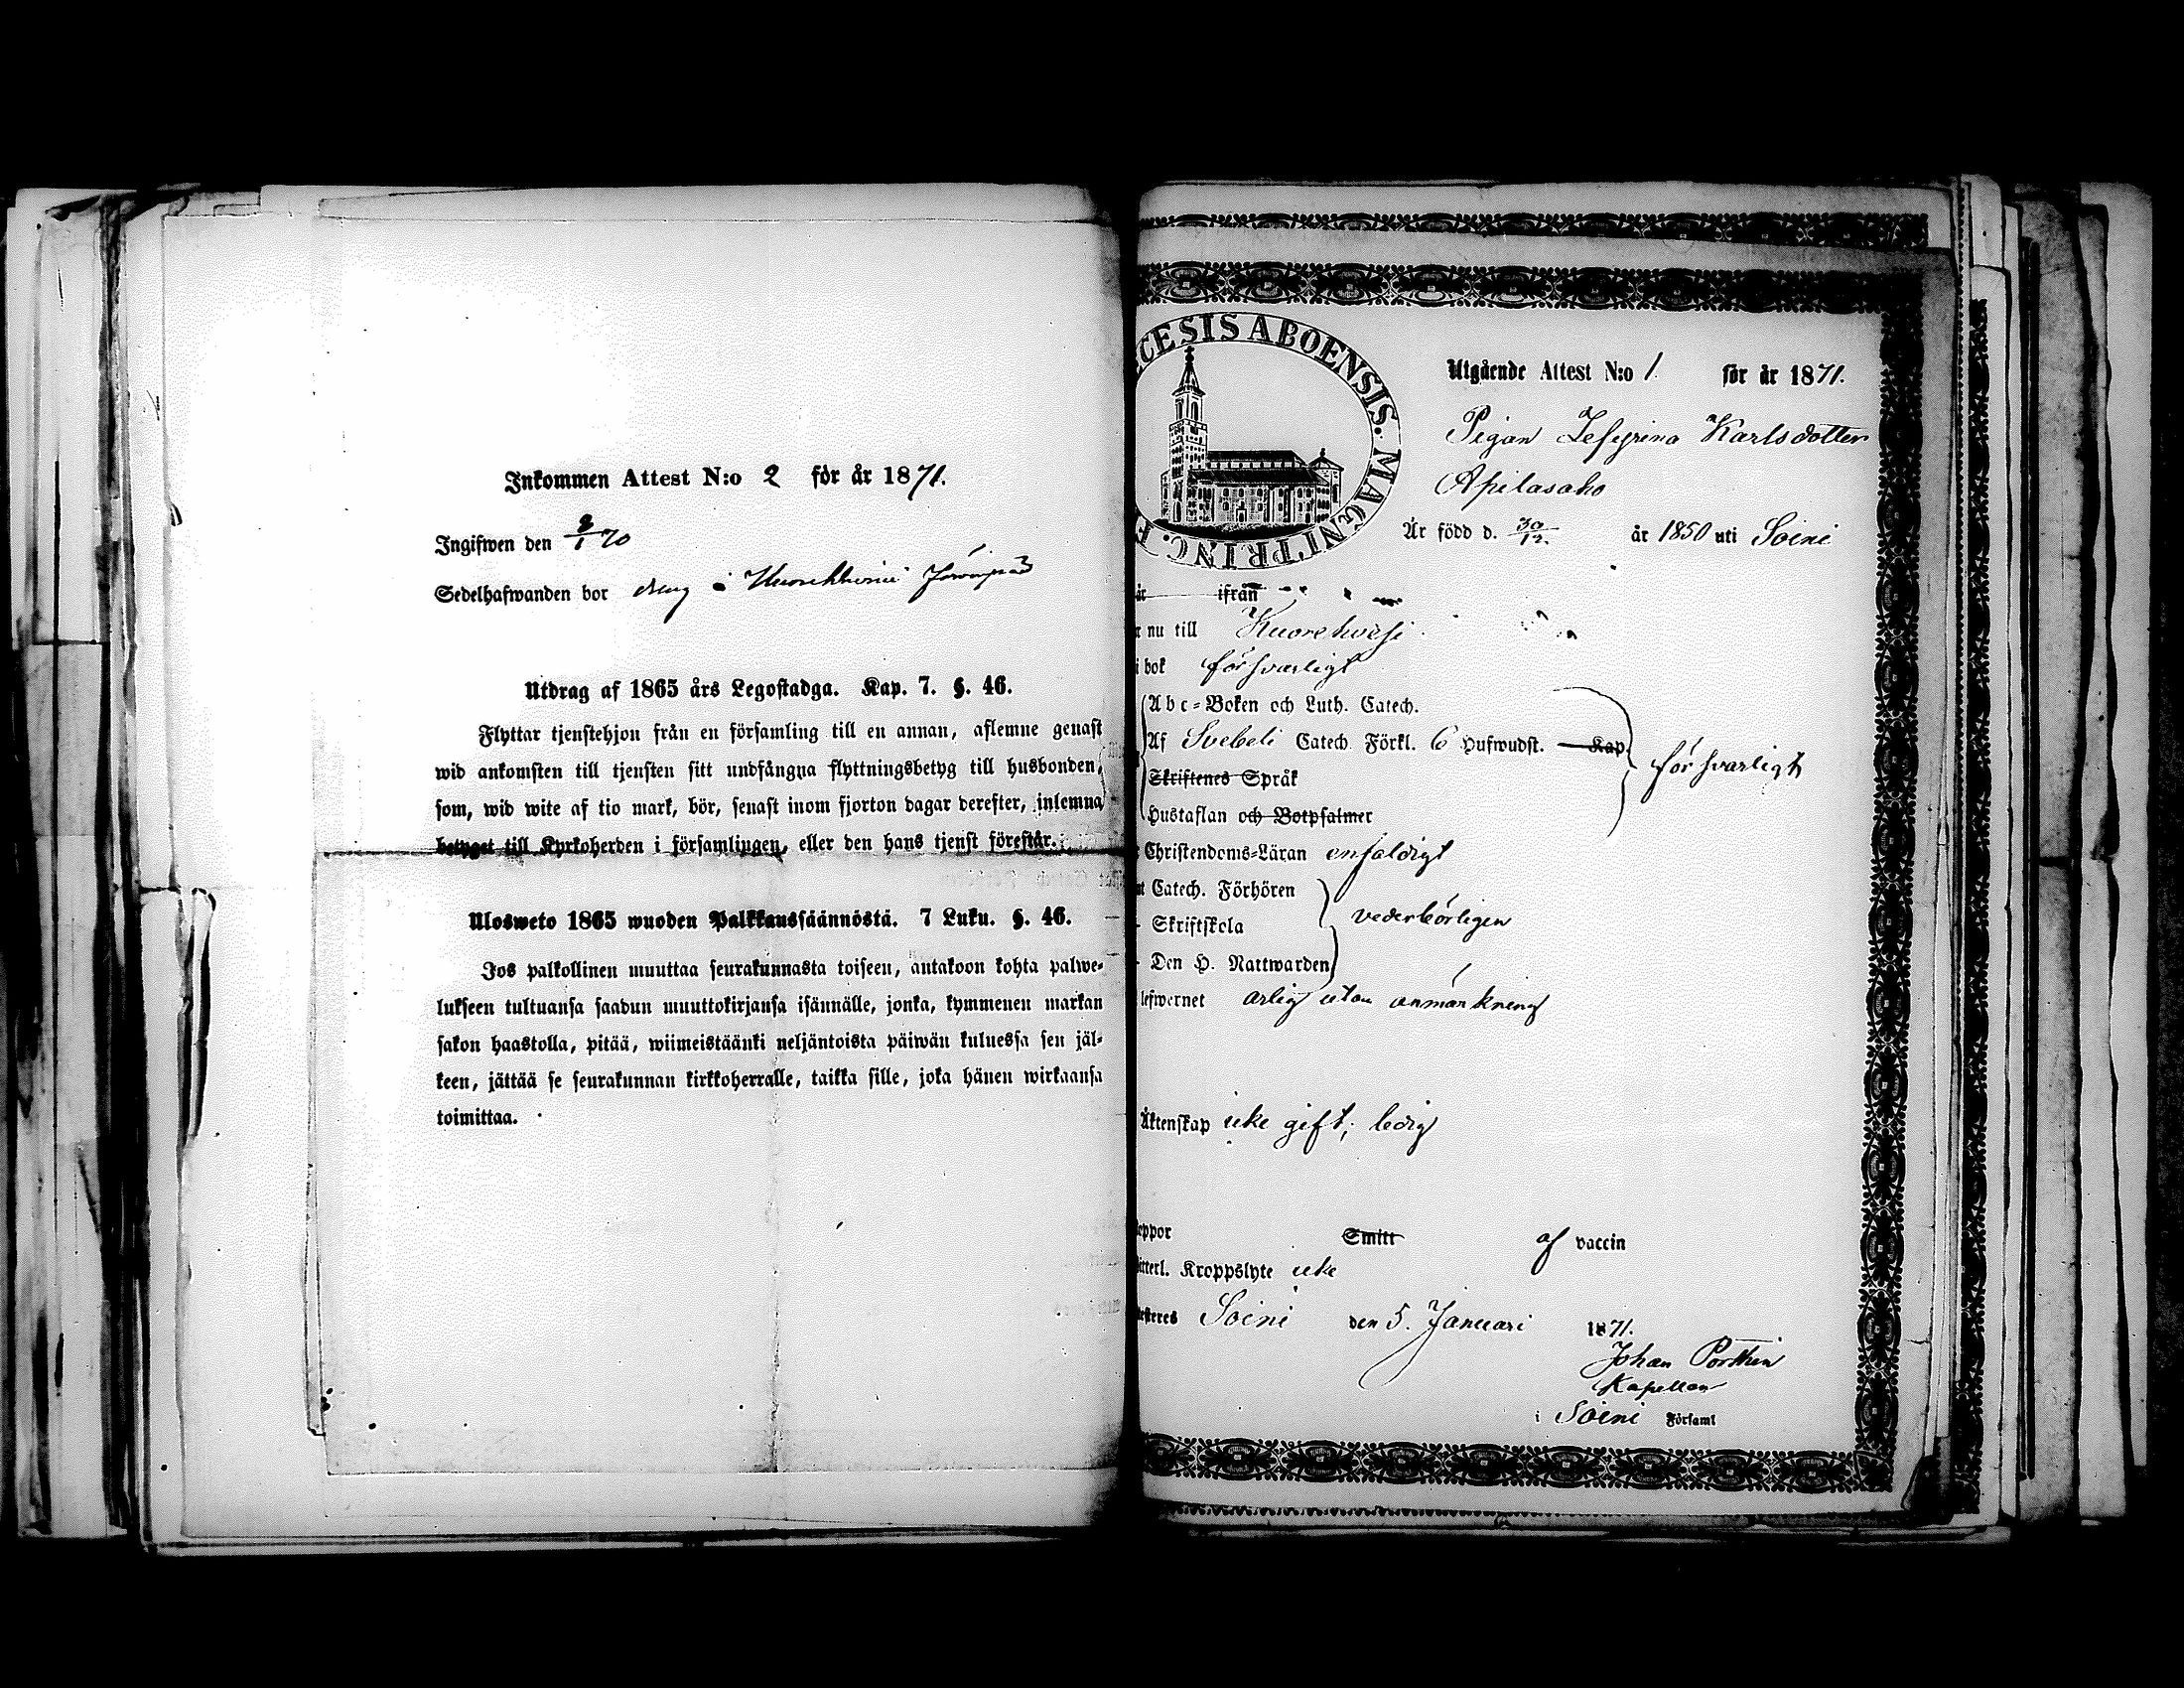 Inkommen Attest N:o 2 för år 1871.
Ingifwen den 8/1 70
Sedelhafwanden bor dräng i
Utdrag af 1865 års Legostadga. Kap. 7. §. 46.
Flyttar tjenstehjon från en församling till en annan, aflemne genast
wid ankomsten till tjensten sitt undfångna flyttningsbetyg till husbonden,
som, wid wite af tio mark, bör, senast inom fjorton dagar derefter, inlemna
betyget till Kyrkoherden i församlingen, eller den hans tjenst förestår.
Ulosweto 1865 wuoden Palkkaussäännöstä. 7 Luku. §. 46.
Jos palkollinen muuttaa seurakunnasta toiseen, antakoon kohta palwe-
lukseen tultuansa saadun muuttokirjansa isännälle, jonka, kymmenen markan
sakon haastolla, pitää, wiimeistäänki neljäntoista päiwän kuluessa sen jäl-
keen, jättää se seurakunnan kirkkoherralle, taikka sille, joka hänen wirkaansa
toimittaa.
CESIS ABOENSIS. MAGNI PRINC. F
Utgående Attest N:o 1 för år 1871.
Pigan Zefyrina Karlsdotter
Apilasaho
Är född d. 30/12. år 1850 uti Soini
är ifrån
r nu till Kuorehvesi
i bok försvarligt
Abc-Boken och Luth. Catech.
Af Svebeli Catech Förkl. 6 Hufwudst. Kap.
försvarligt
Skriftenes Språk
Hustaflan och Botpsalmer
Christendoms-Läran enfaldigt
t Catech. Förhören
Skriftskola vederbörligen
Den H. Nattwarden
lefwernet ärligt utan anmärkning
Äktenskap icke gift; ledig
oppor Smitt af vaccin
itterl. Kroppslyte icke
testeres Soini den 5. Januari 1871.
Johan Porthin
Kapellan
i Soini Församl